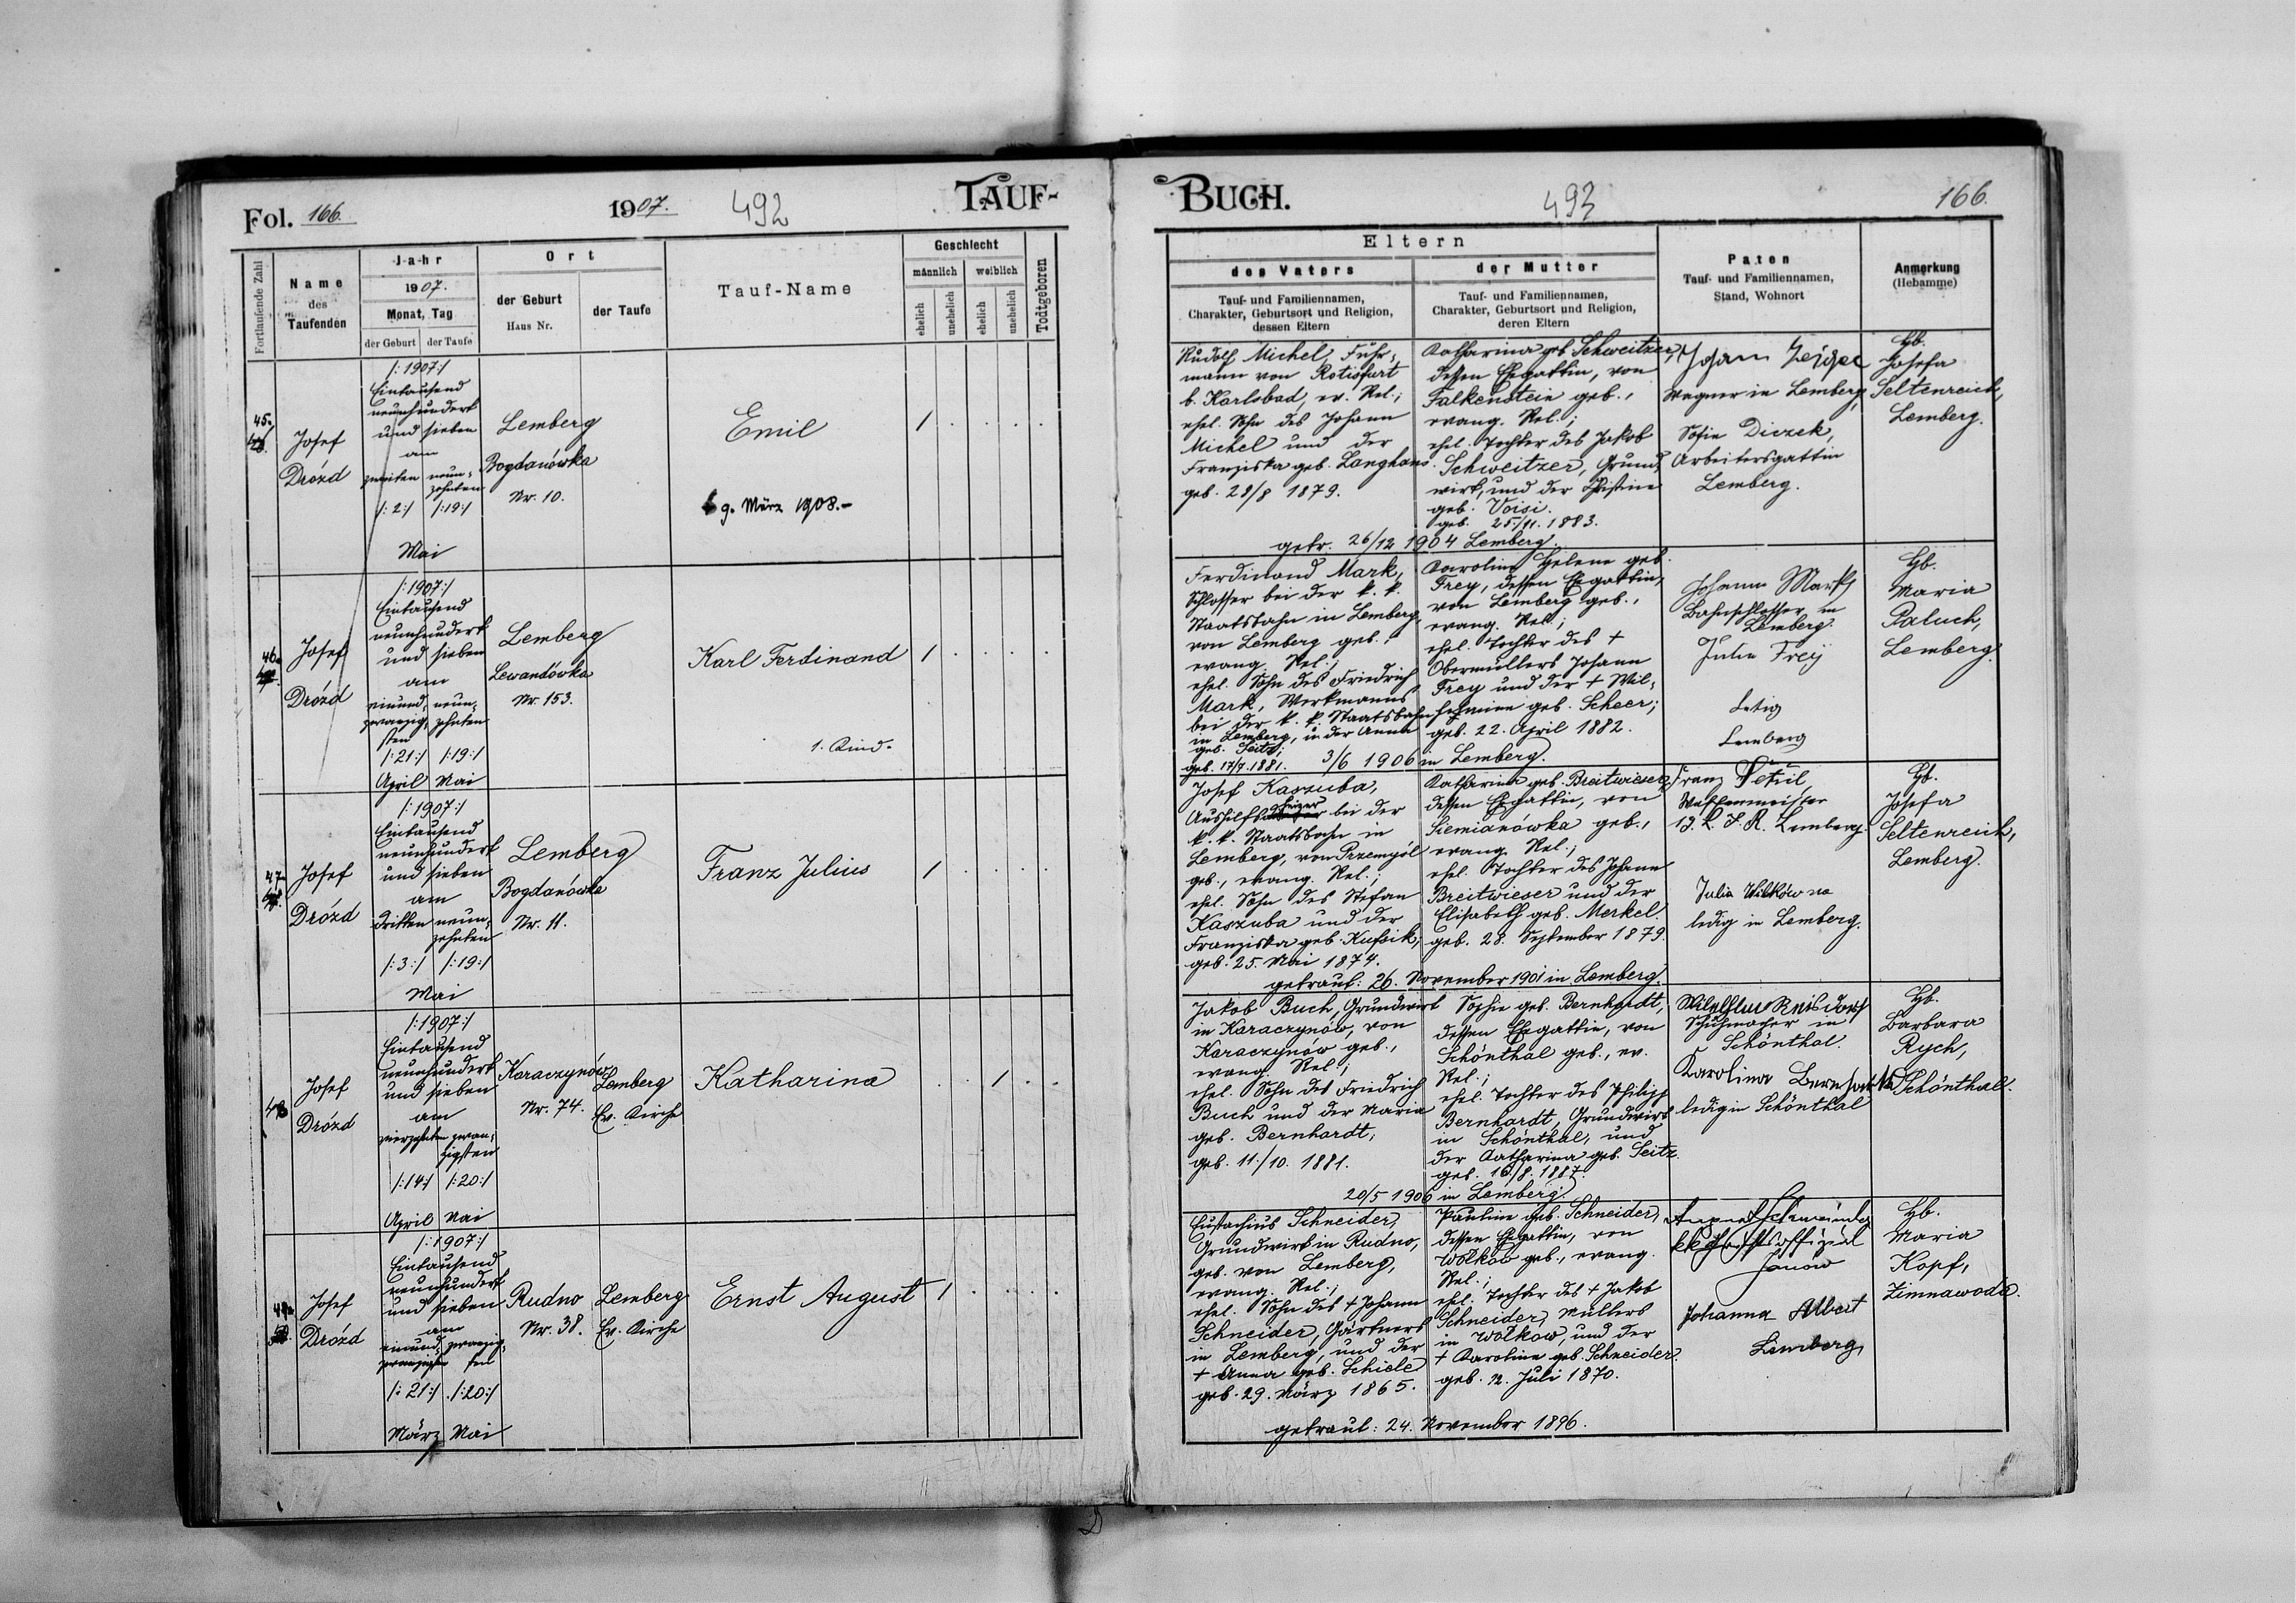 Fol. 166.
1907.
492
TAUF-
BUCH.
493
166.
Fortlaufende Zahl
Name
des
Taufenden
Jahr
1907.
Monat, Tag
der Geburt
der Taufe
Ort
der Geburt
Haus Nr.
der Taufe
Tauf-Name
Geschlecht
männlich
weiblich
ehelich
unehelich
ehelich
unehelich
Todtgeboren
Eltern
des Vaters
Tauf- und Familiennamen,
Charakter, Geburtsort und Religion,
dessen Eltern
der Mutter
Tauf- und Familiennamen,
Charakter, Geburtsort und Religion,
deren Eltern
Paten
Tauf- und Familiennamen,
Stand, Wohnort
Anmerkung
(Hebamme)
45.
Josef
Drózd
/:1907:/
Eintausend
neunhundert
und sieben
am
zweiten
/:2:/
neun-
zehnten
/:19:/
Mai
Lemberg
Bogdanówka
Nr. 10.
Emil
9. März 1908.-
1
Rudolf Michel, Fuhr-
mann von Rotisfurt
b. Karlsbad, ev. Rel.;
ehel. Sohn des Johann
Michel und der
Franziska geb. Langhans.
geb. 28/8 1879.
Katharina geb. Schweitzer,
dessen Ehgattin, von
Falkenstein geb.,
evang. Rel.;
ehel. Tochter des Jakob
Schweitzer, Grund-
wirt, und der Christine
geb. Voisi.
geb. 25./11. 1883.
getr. 26/12 1904 Lemberg.
Johann
Wagner in Lemberg,
Sofie Diczek,
Arbeitersgattin
Lemberg.
Hb.
Josefa
Seltenreich,
Lemberg.
46.
Josef
Drózd
/:1907:/
Eintausend
neunhundert
und sieben
am
einund-
zwanzig-
sten
/:21:/
April
neun-
zehnten
/:19:/
Mai
Lemberg
Lewandówka
Nr. 153.
Karl Ferdinand
1. Kind.
1
Ferdinand Mark,
Schlosser bei der k. k.
Staatsbahn in Lemberg,
von Lemberg geb.,
evang. Rel.;
ehel. Sohn des Friedrich
Mark, Werkmanns
bei der k. k. Staatsbahn
in Lemberg, u. der Anna
geb. Seitz;
geb. 17/7. 1881.
Karoline Helene geb.
Frey, dessen Ehgattin,
von Lemberg geb.,
evang. Rel.;
ehel. Tochter des †
Obermüllers Johann
Frey und der † Wil-
helmine geb. Scheer;
geb. 22. April 1882.
3/6 1906 in Lemberg.
Johann Mark
Bahnschlosser in
Lemberg.
Julia Frey
Ledig
Lemberg
Hb.
Maria
Paluch,
Lemberg.
47.
Josef
Drózd
/:1907:/
Eintausend
neunhundert
und sieben
am
dritten
/:3:/
neun-
zehnten
/:19:/
Mai
Lemberg
Bogdanówka
Nr. 11.
Franz Julius
1
Josef Kaszuba,
Aushilfsheizer bei der
k. k. Staatsbahn in
Lemberg, von Przemyśl
geb., evang. Rel.;
ehel. Sohn des Stefan
Kaszuba und der
Franziska geb. Kufsik,
geb. 25. Mai 1874.
Katharina geb. Breitwieser,
dessen Ehgattin, von
Siemianówka geb.,
evang. Rel.;
ehel. Tochter des Johann
Breitwieser und der
Elisabeth geb. Merkel.
geb. 28. September 1879.
getraut: 26. November 1901 in Lemberg.
Franz Petul,
Waffenmeister
Lemberg.
Julia Witków na
ledig in Lemberg.
Hb.
Josefa
Seltenreich,
Lemberg.
48
Josef
Drózd
/:1907:/
Eintausend
neunhundert
und sieben
am
vierzehnten
/:14:/
April
zwan-
zigsten
/:20:/
Mai
Karaczynów
Nr. 74.
Lemberg
Ev. Kirche
Katharina
1
Jakob Buch, Grundwirt
in Karaczynów, von
Karaczynów geb.,
evang. Rel.;
ehel. Sohn des Friedrich
Buch und der Maria
geb. Bernhardt,
geb. 11./10. 1881.
Sophie geb. Bernhardt,
dessen Ehgattin, von
Schönthal geb., ev.
Rel.;
ehel. Tochter des Philipp
Bernhardt, Grundwirt
in Schönthal, und
der Katharina geb. Seitz.
geb. 16/8. 1887.
20/5 1906 in Lemberg.
Schuhmacher in
Schönthal.
Karolina
ledig in Schönthal
Hb.
Barbara
Rych,
Schönthal.
49.
Josef
Drózd
/:1907:/
Eintausend
neunhundert
und sieben
am
einund-
zwanzigsten
/:21:/
März
zwanzig-
sten
/:20:/
Mai
Rudno
Nr. 38.
Lemberg
Ev. Kirche
Ernst August
1
Eustachius Schneider,
Grundwirt in Rudno,
geb. von Lemberg,
evang. Rel.;
ehel. Sohn des † Johann
Schneider, Gärtners
in Lemberg, und der
† Anna geb. Schiele
geb. 29. März 1865.
Pauline geb. Schneider,
dessen Ehgattin, von
Wołkow geb., evang.
Rel.;
ehel. Tochter des † Jakob
Schneider, Müllers
in Wołkow, und der
† Karoline geb. Schneider.
geb. 12. Juli 1870.
getraut: 24. November 1896.
August Schneider
Janów
Johanna Albert
Lemberg
Hb.
Maria
Kopf,
Zimnawoda.